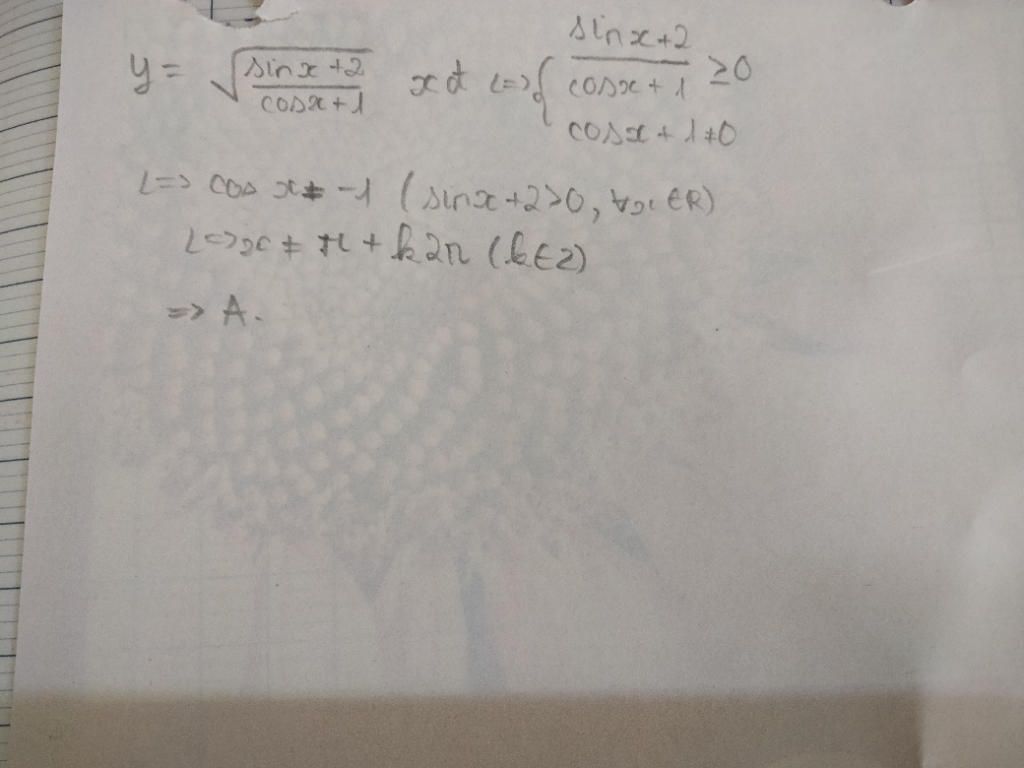 y = √((sinx+2)/(cosx+1)) xđ <=> { (sinx+2)/(cosx+1) ≥ 0
cosx+1≠0
<=> cos x ≠ -1 (sinx+2>0, ∀x∈R)
<=> x ≠ π + k2π (k∈Z)
=> A.